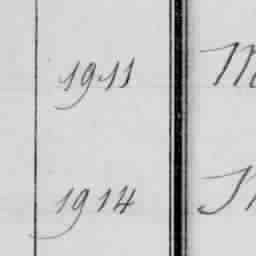 1911
1914